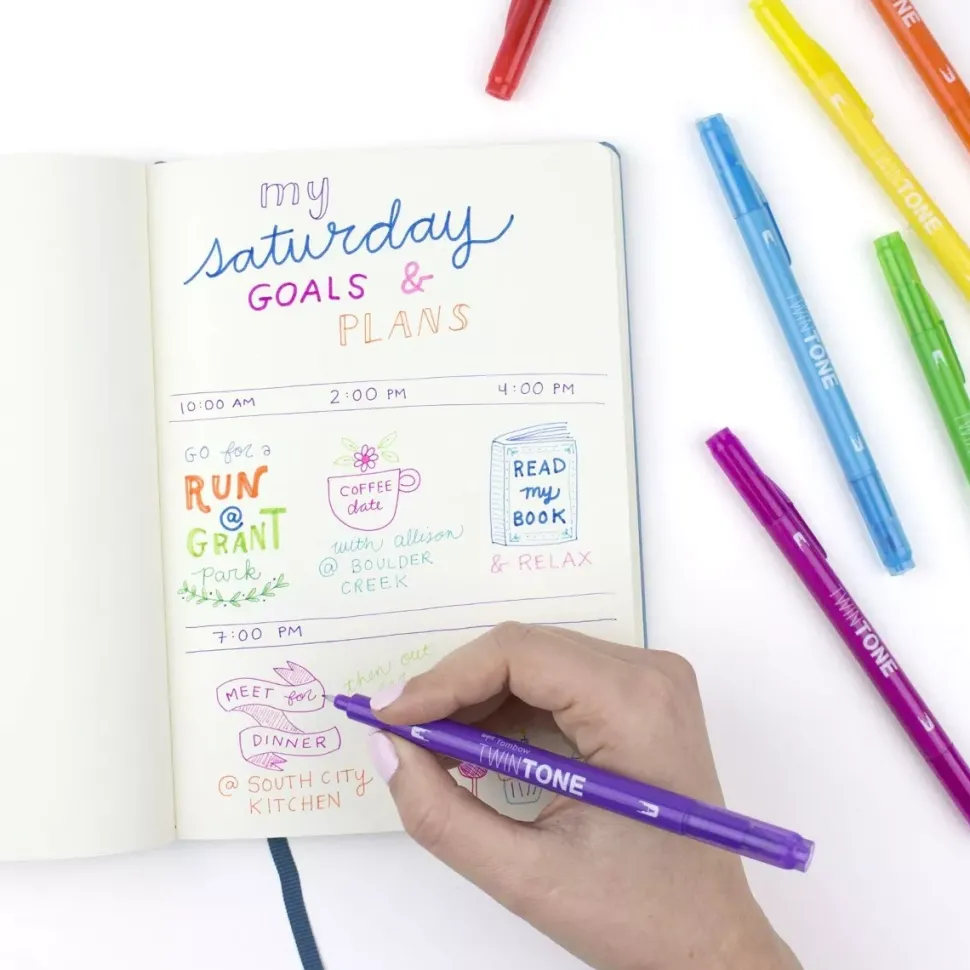 my
saturday
GOALS &
PLANS
10:00 AM
2:00 PM
4:00 PM
GO for a
RUN
@
GRANT
park
COFFEE
date
with allison
@ BOULDER
CREEK
READ
my
BOOK
& RELAX
7:00 PM
MEET for
DINNER
@ SOUTH CITY
KITCHEN
then out
Tombow
TWINTONE
TWINTONE
TWINTONE
TONE
NE
TWIN